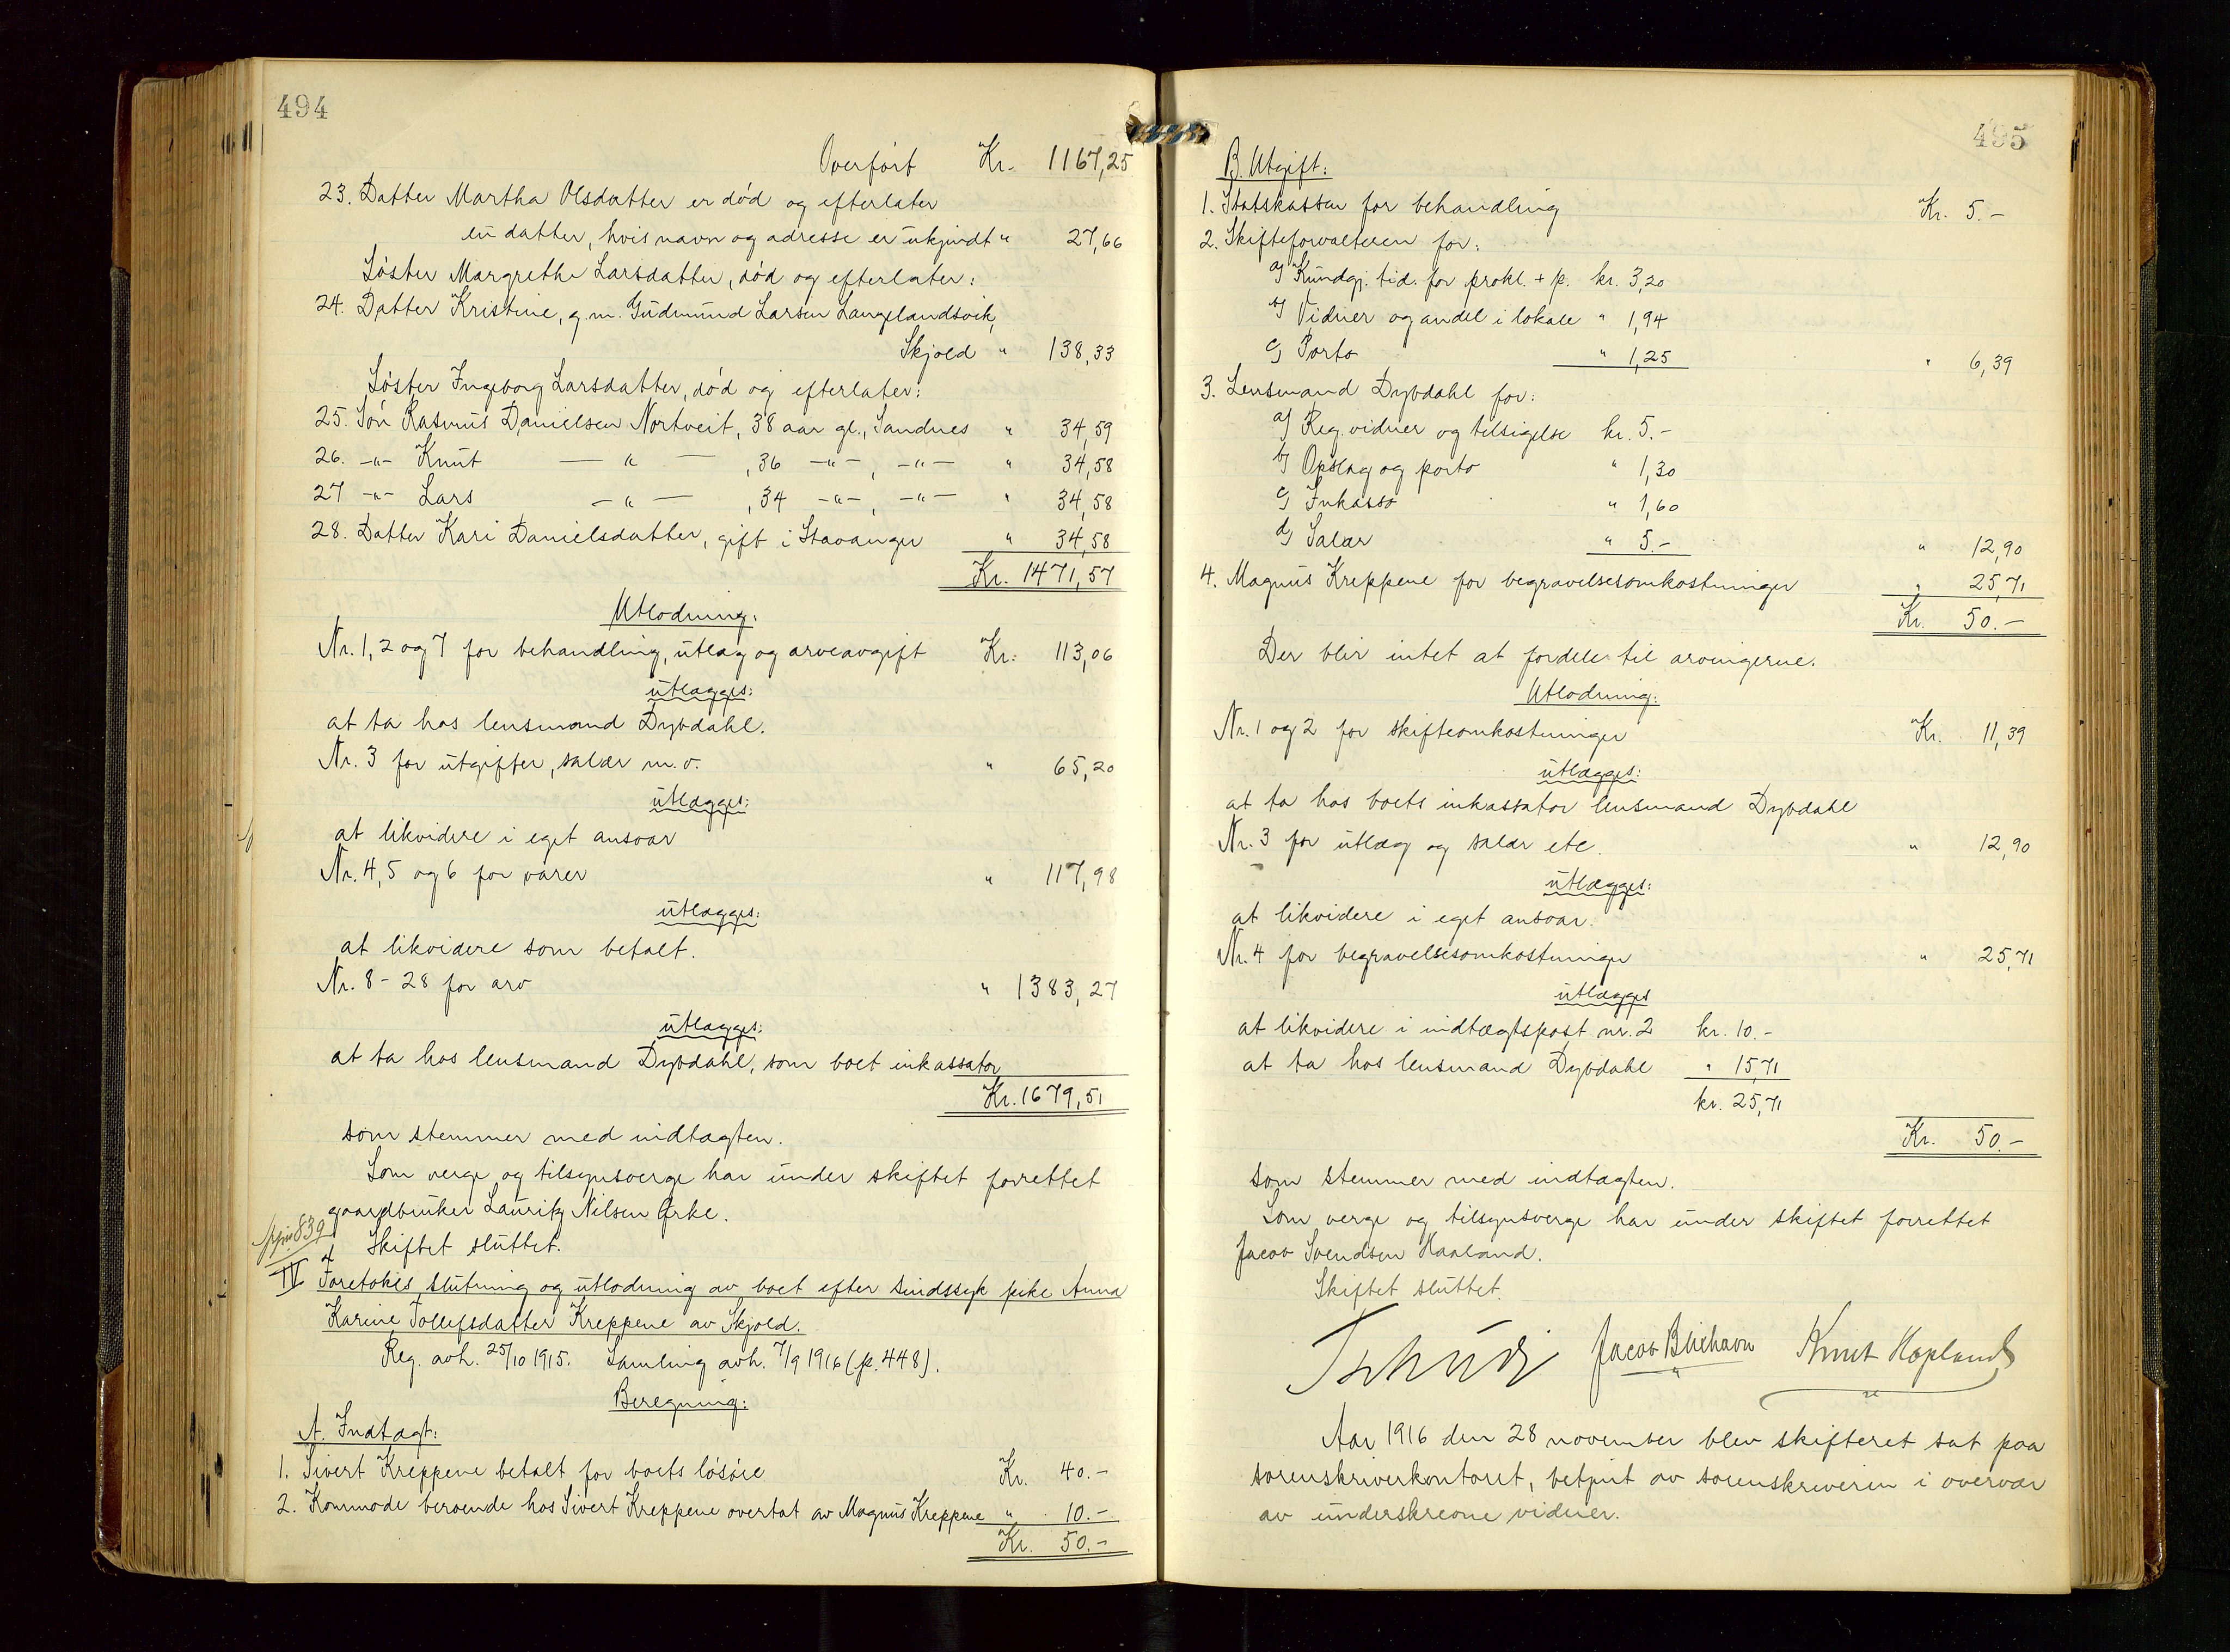 494
Overført Kr. 1167,25
23. Datter Martha Olsdatter er død og efterlater
en datter, hvis navn og adresse er ukjendt " 27,66
Søster Margrethe Larsdatter, død og efterlater:
24. Datter Kristine, g.m. Gudmund Larsen Langelandsvik,
Skjold " 138,33
Søster Ingeborg Larsdatter, død og efterlater:
25. Søn Rasmus Danielsen Nortveit, 38 aar gl., Sandnes " 34,59
26. -"- Knut -"- , 36 -"-, -"- " 34,58
27 -"- Lars -"- , 34 -"-, -"- " 34,58
28. Datter Kari Danielsdatter, gift i Stavanger " 34,58
Kr. 1471,57
Utlodning:
Nr. 1, 2 og 7 for behandling, utlæg og arveavgift Kr. 113,06
utlægges:
at ta hos lensmand Dybdahl.
Nr. 3 for utgifter, salær m.v. " 65,20
utlægges:
at likvidere i eget ansvar
Nr. 4, 5 og 6 for varer " 117,98
utlægges:
at likvidere som betalt.
Nr. 8 - 28 for arv " 1383,27
utlægges:
at ta hos lensmand Dybdahl, som boets inkassator
Kr. 1679,51
som stemmer med indtægten.
Som verge og tilsynsverge har under skiftet forrettet
gaardbruker Lauritz Nilsen Ørke.
Skiftet sluttet.
839
IV Foretokes slutning og utlodning av boet efter sindssyk pike Anna
Karine Tollefsdatter Kreppene av Skjold.
Reg. avh. 25/10 1915. Samling avh. 7/9 1916 (p. 448).
Beregning:
A. Indtægt:
1. Sivert Kreppene betalt for boets løsøre Kr. 40.-
2. Kommode beroende hos Sivert Kreppene overtat av Magnus Kreppene " 10.-
Kr. 50.-
495
B. Utgift:
1. Statskassen for behandling Kr. 5.-
2. Skifteforvalteren for:
a) Kundgj. tid. for prokl. + p. kr. 3,20
b) Vidner og andel i lokale " 1,94
c) Porto " 1,25 " 6,39
3. Lensmand Dybdahl for:
a) Reg. vidner og tilsigelse kr. 5.-
b) Opslag og porto " 1,30
c) Inkasso " 1,60
d) Salær " 5.- " 12,90
4. Magnus Kreppene for begravelsesomkostninger " 25,71
Kr. 50.-
Der blir intet at fordele til arvingerne.
Utlodning:
Nr. 1 og 2 for skifteomkostninger Kr. 11,39
utlægges:
at ta hos boets inkassator lensmand Dybdahl
Nr. 3 for utlæg og salær etc. " 12,90
utlægges:
at likvidere i eget ansvar.
Nr. 4 for begravelsesomkostninger " 25,71
utlægges
at likvidere i indtægtspost nr. 2 kr. 10.-
at ta hos lensmand Dybdahl " 15,71
kr. 25,71
Kr. 50.-
som stemmer med indtægten.
Som verge og tilsynsverge har under skiftet forrettet
Jacob Svendsen Haaland.
Skiftet sluttet.
Tschudi Jacob Blichavn Knut Hapland
Aar 1916 den 28 november blev skifteret sat paa
sorenskriverkontoret, betjent av sorenskriveren i overvær
av underskrevne vidner.